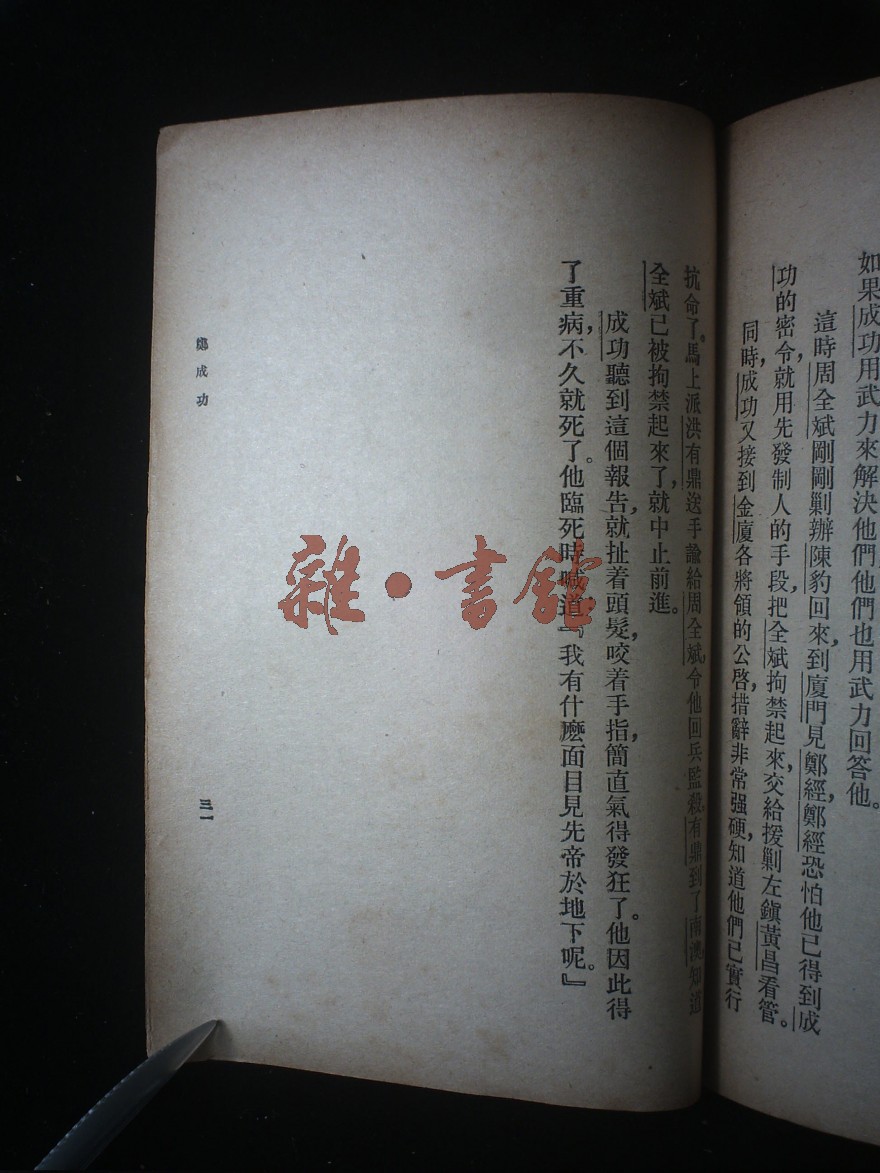 如果成功用武力來解決他們，他們也用武力回答他。
這時周全斌剛剛剿辦陳豹回來，到廈門見鄭經，鄭經恐怕他已得到成
功的密令，就用先發制人的手段，把全斌拘禁起來，交給援剿左鎮黃昌看管。
同時，成功又接到金廈各將領的公啓，措辭非常强硬，知道他們已實行
抗命了。馬上派洪有鼎送手諭給周全斌，令他回兵監殺。有鼎到了南澳，知道
全斌已被拘禁起來了，就中止前進。
成功聽到這個報告，就扯着頭髮，咬着手指，簡直氣得發狂了。他因此得
了重病，不久就死了。他臨死時喊道：『我有什麽面目見先帝於地下呢。』
鄭成功
三一
雜·書館